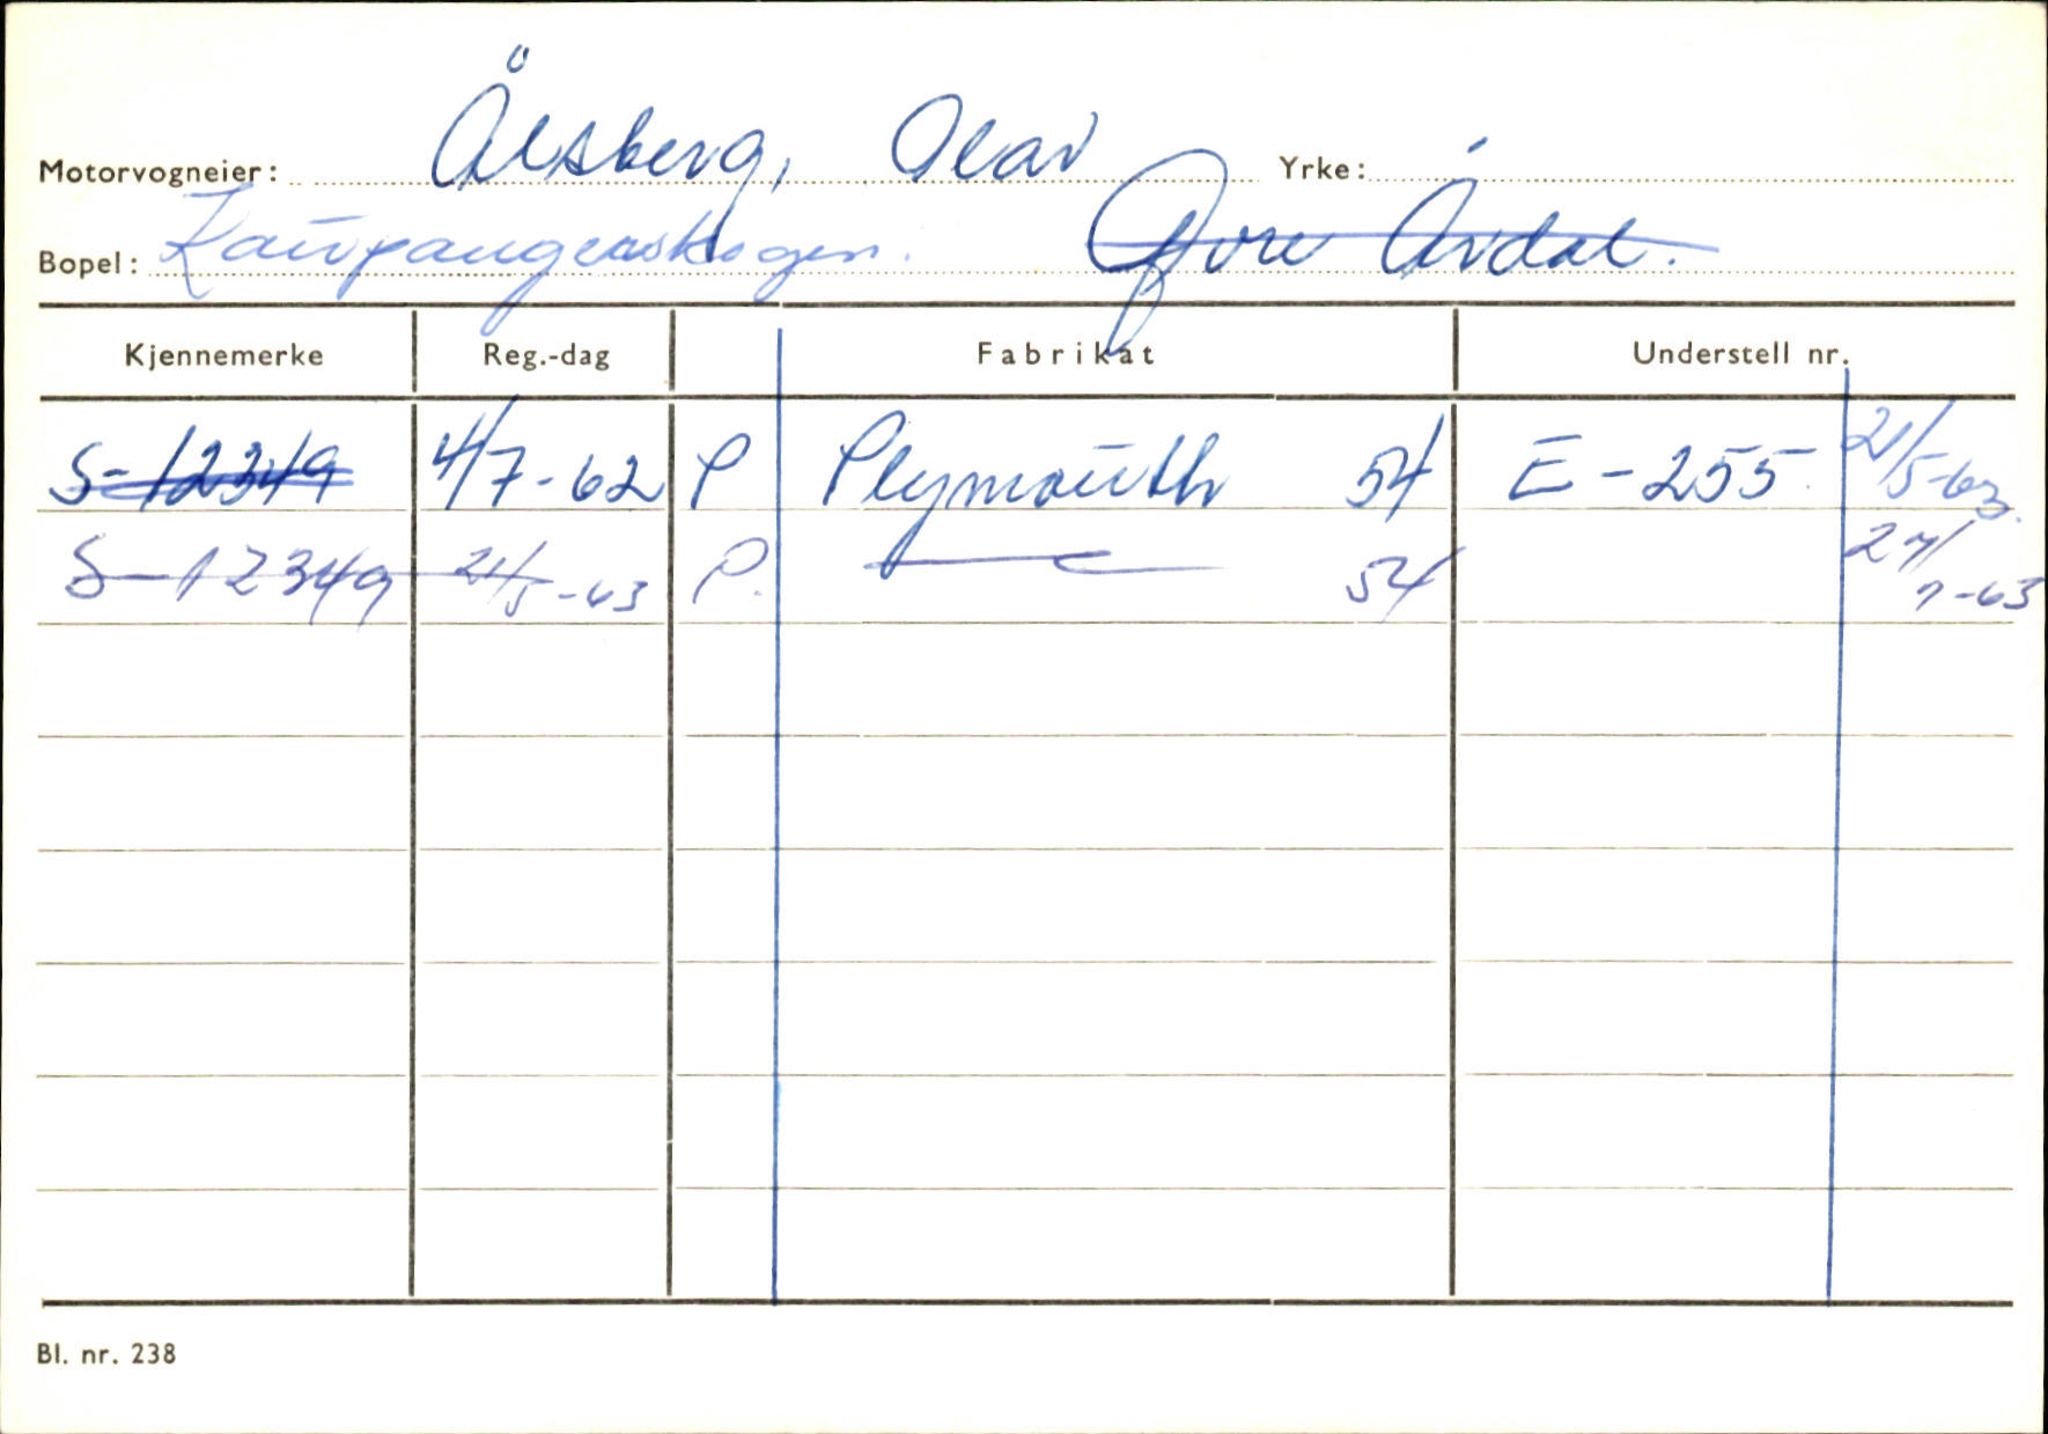 Motorvogneier: Ålsberg, Olav Yrke:
Bopel: Kaupangerskogen. Øvre Årdal.
Kjennemerke Reg.-dag Fabrikat Understell nr.
S-12349 4/7-62 P Plymouth 54 E-255 21/5-63.
S-12349 21/5-63 P. — 54 27/7-63
Bl. nr. 238